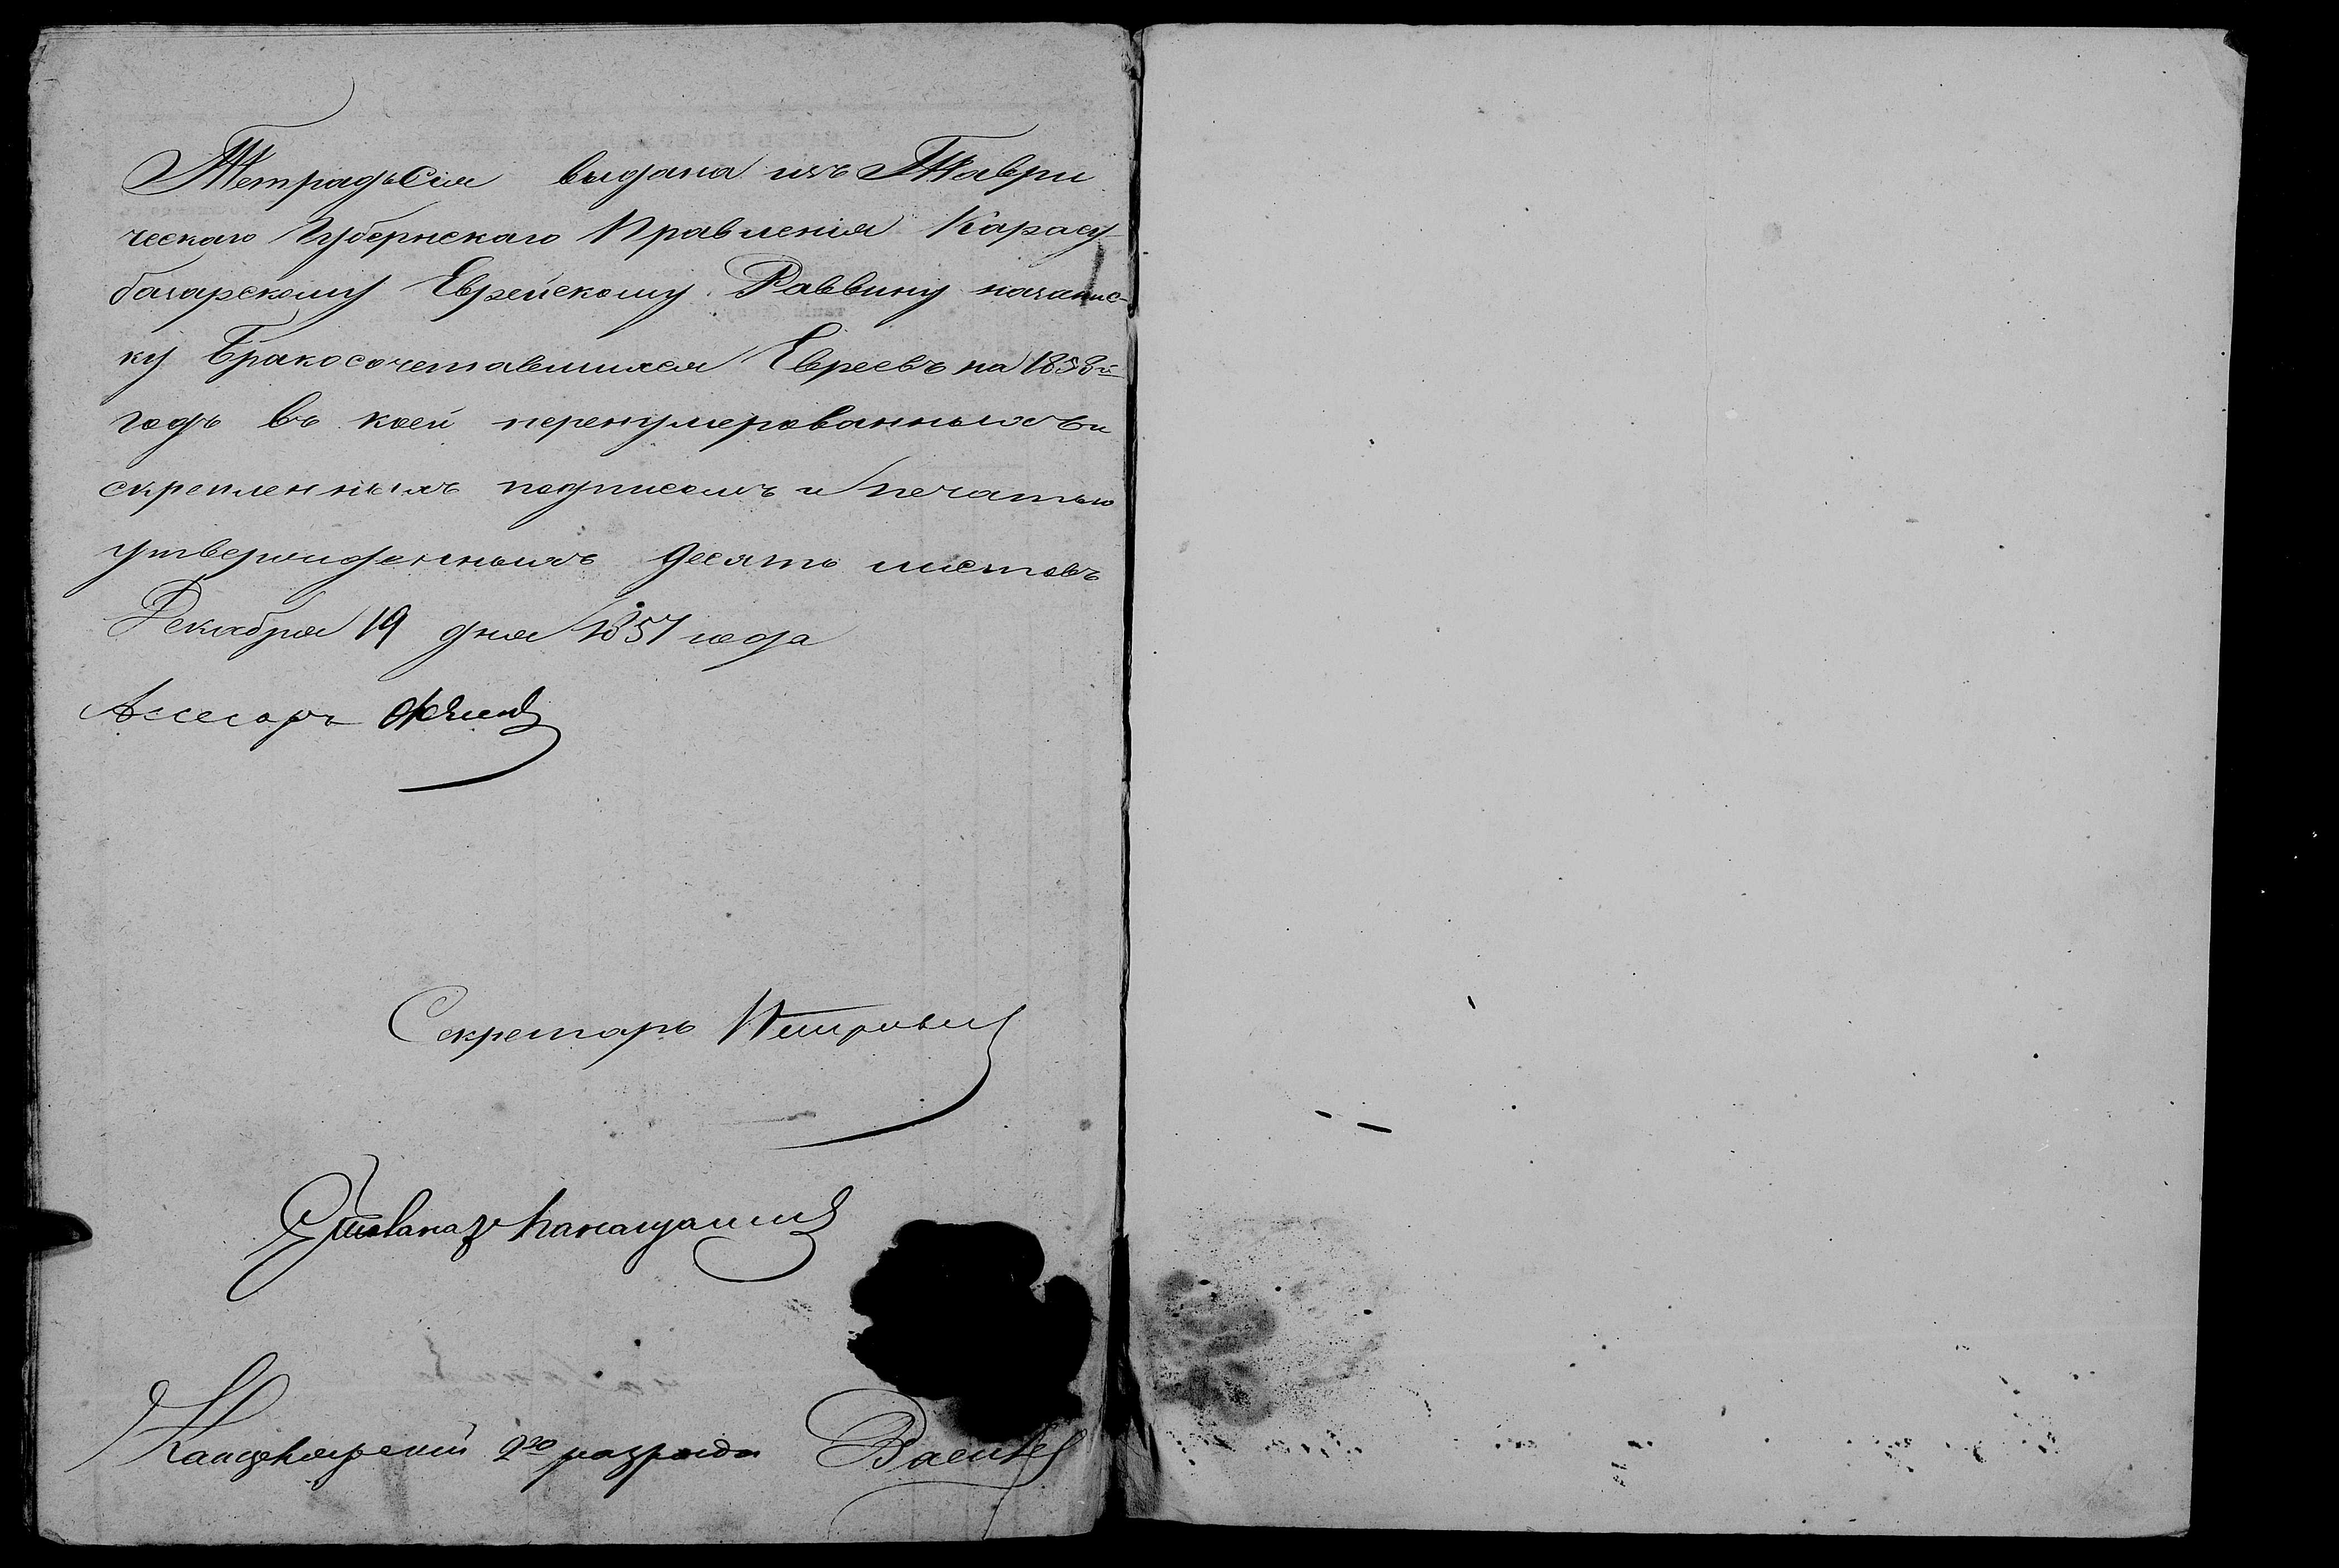 Тетрадь сія выдана изъ Таври
ческаго Губернскаго Правленія Карасу-
базарскому Еврейскому Раввину на запис-
ку бракосочетавшихся Евреевъ на 1858й
годъ въ коей перенумерованныхъ и
скрепленныхъ подписомъ и печатью
утвержденныхъ десять листовъ
Декабря 19 дня 1857 года
Ассесоръ
Секретарь
Канцелярскій 2го разряда